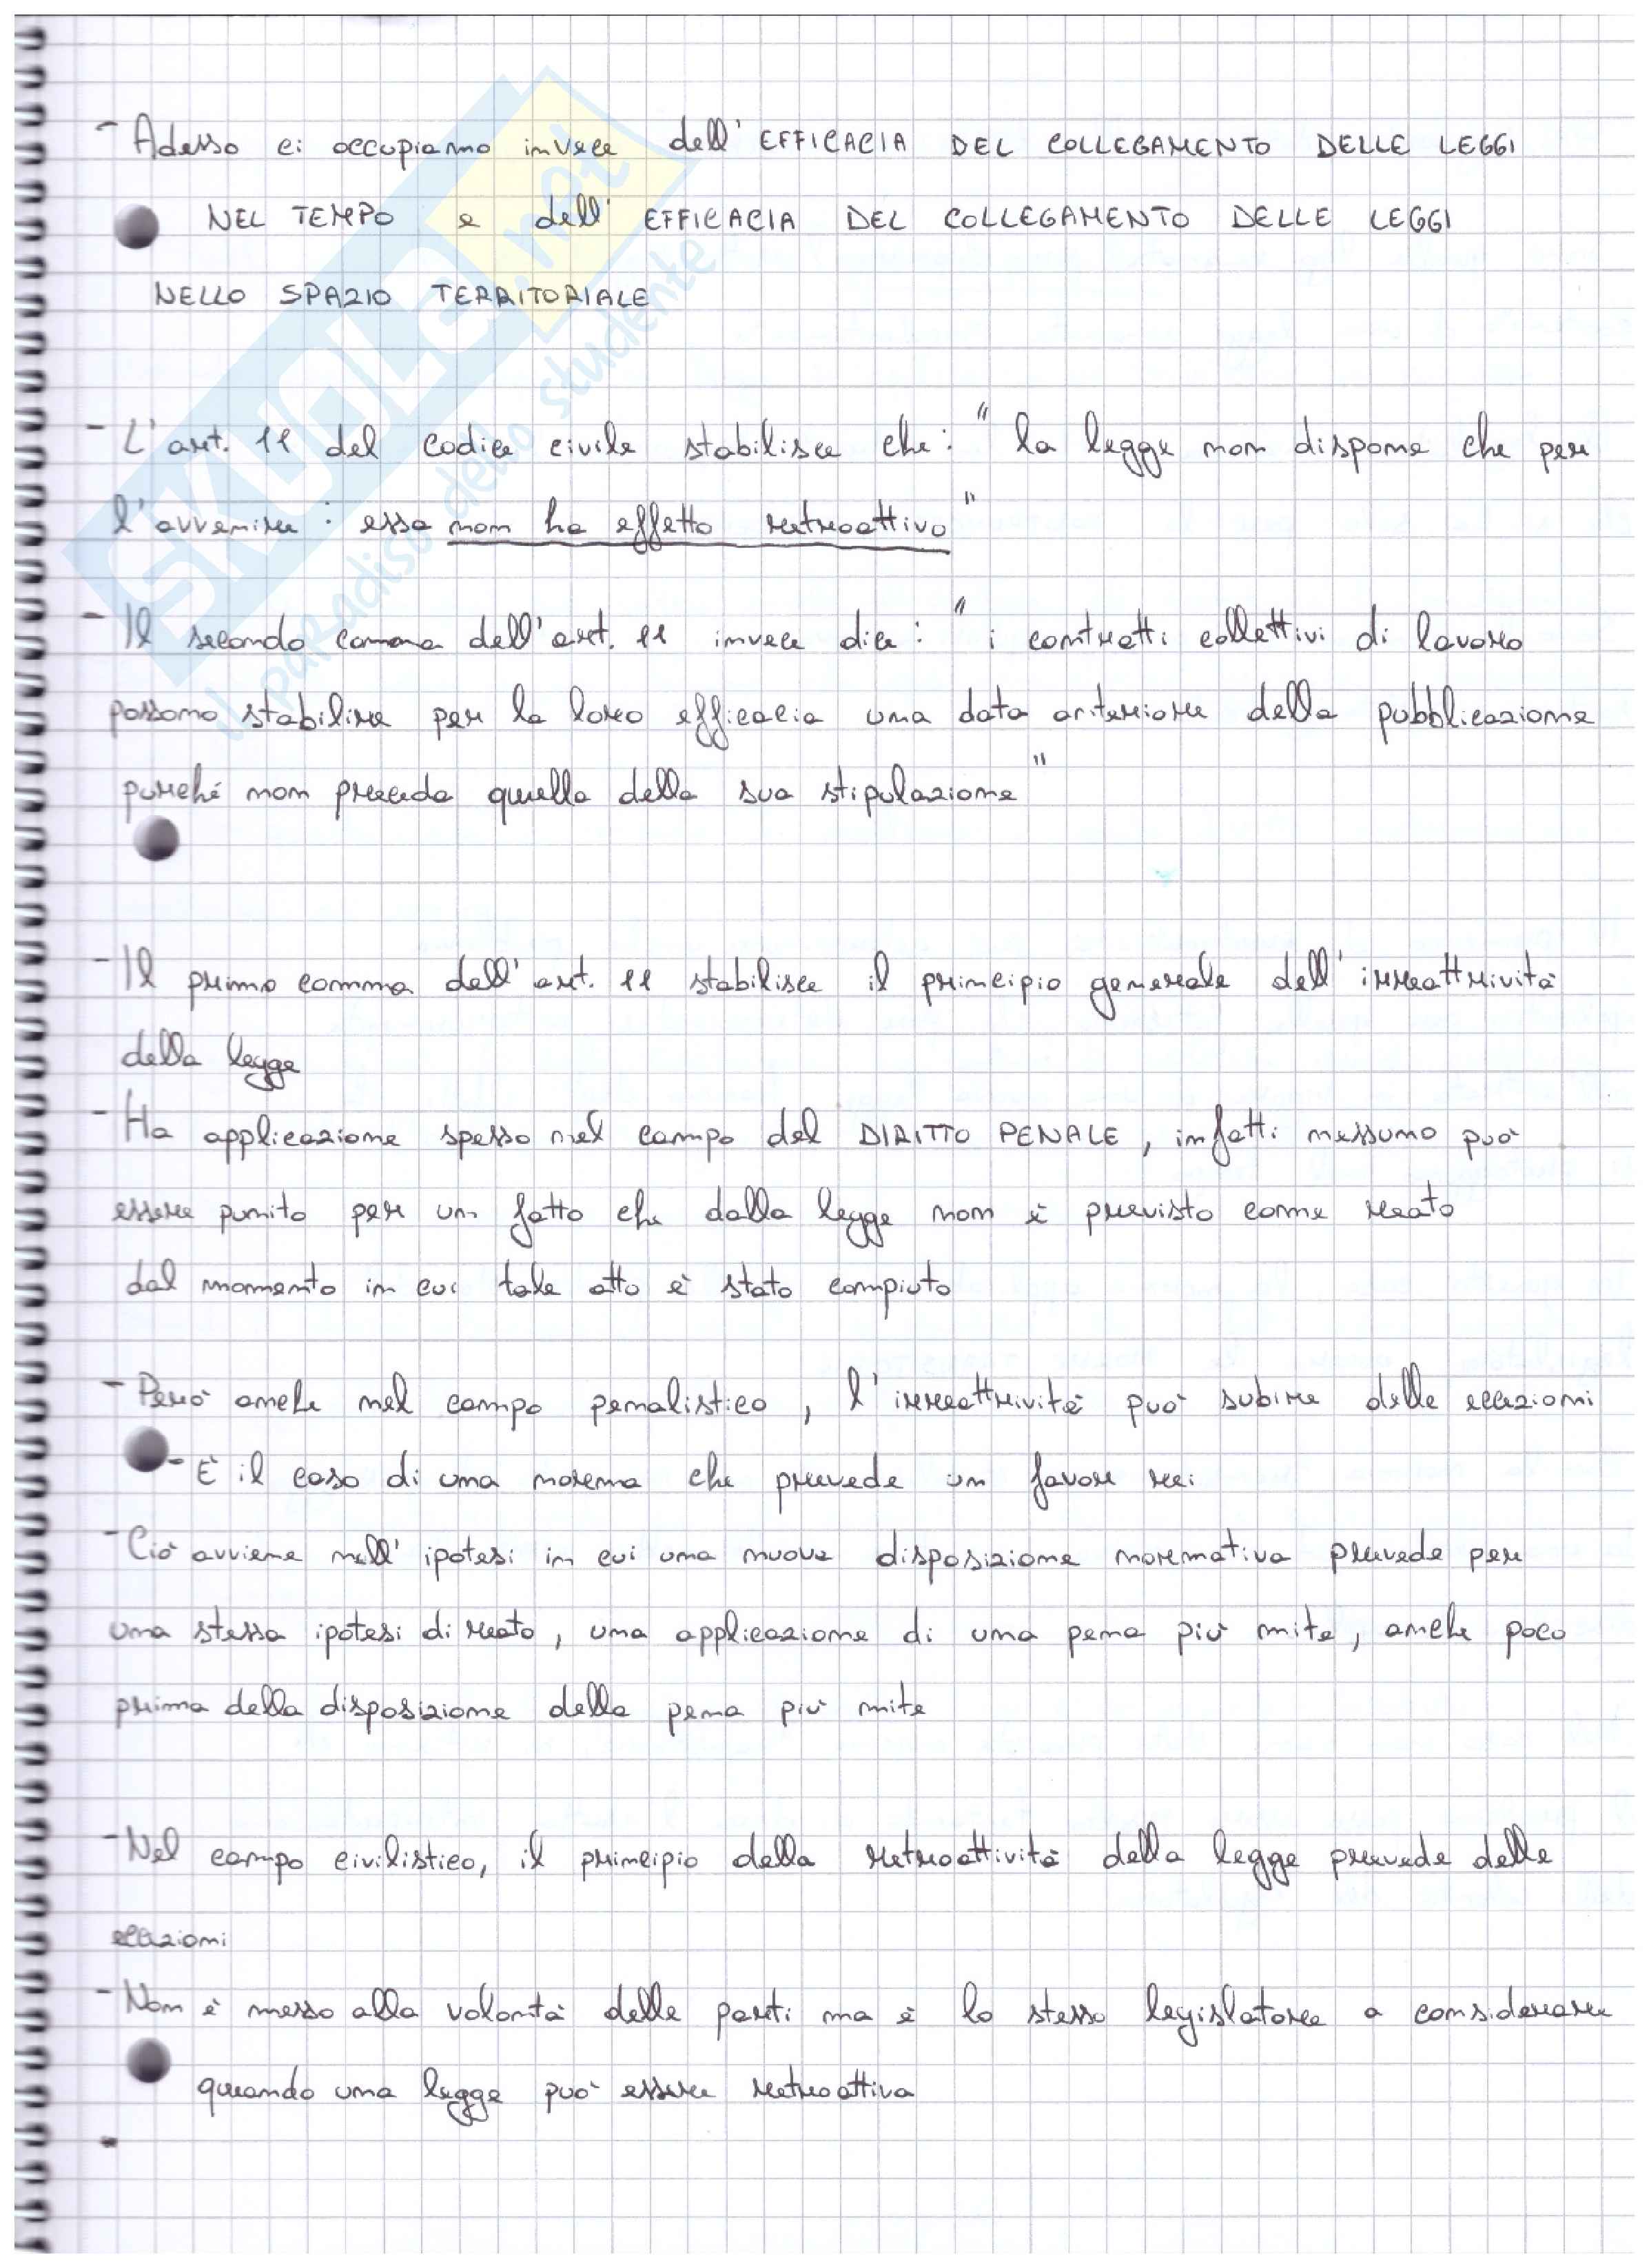 - Adesso ci occupiamo invece dell'EFFICACIA DEL COLLEGAMENTO DELLE LEGGI
NEL TEMPO e dell'EFFICACIA DEL COLLEGAMENTO DELLE LEGGI
NELLO SPAZIO TERRITORIALE
- L'art. 11 del codice civile stabilisce che: "la legge non dispone che per
l'avvenire: essa non ha effetto retroattivo"
- Il secondo comma dell'art. 11 invece dice: "i contratti collettivi di lavoro
possono stabilire per la loro efficacia una data anteriore della pubblicazione
purché non preceda quella della sua stipulazione"
- Il primo comma dell'art. 11 stabilisce il principio generale dell'irreattrività
della legge
- Ha applicazione spesso nel campo del DIRITTO PENALE, infatti nessuno può
essere punito per un fatto che dalla legge non è previsto come reato
dal momento in cui tale atto è stato compiuto
- Però anche nel campo penalistico, l'irreattrività può subire delle eccezioni
- È il caso di una norma che prevede un favor rei
- Ciò avviene nell'ipotesi in cui una nuova disposizione normativa prevede per
una stessa ipotesi di reato, una applicazione di una pena più mite, anche poco
prima della disposizione della pena più mite
- Nel campo civilistico, il principio della retroattività della legge prevede delle
eccezioni
- Non è messo alla volontà delle parti ma è lo stesso legislatore a considerare
quando una legge può essere retroattiva
-
SKUOLA.net
il paradiso dello studente